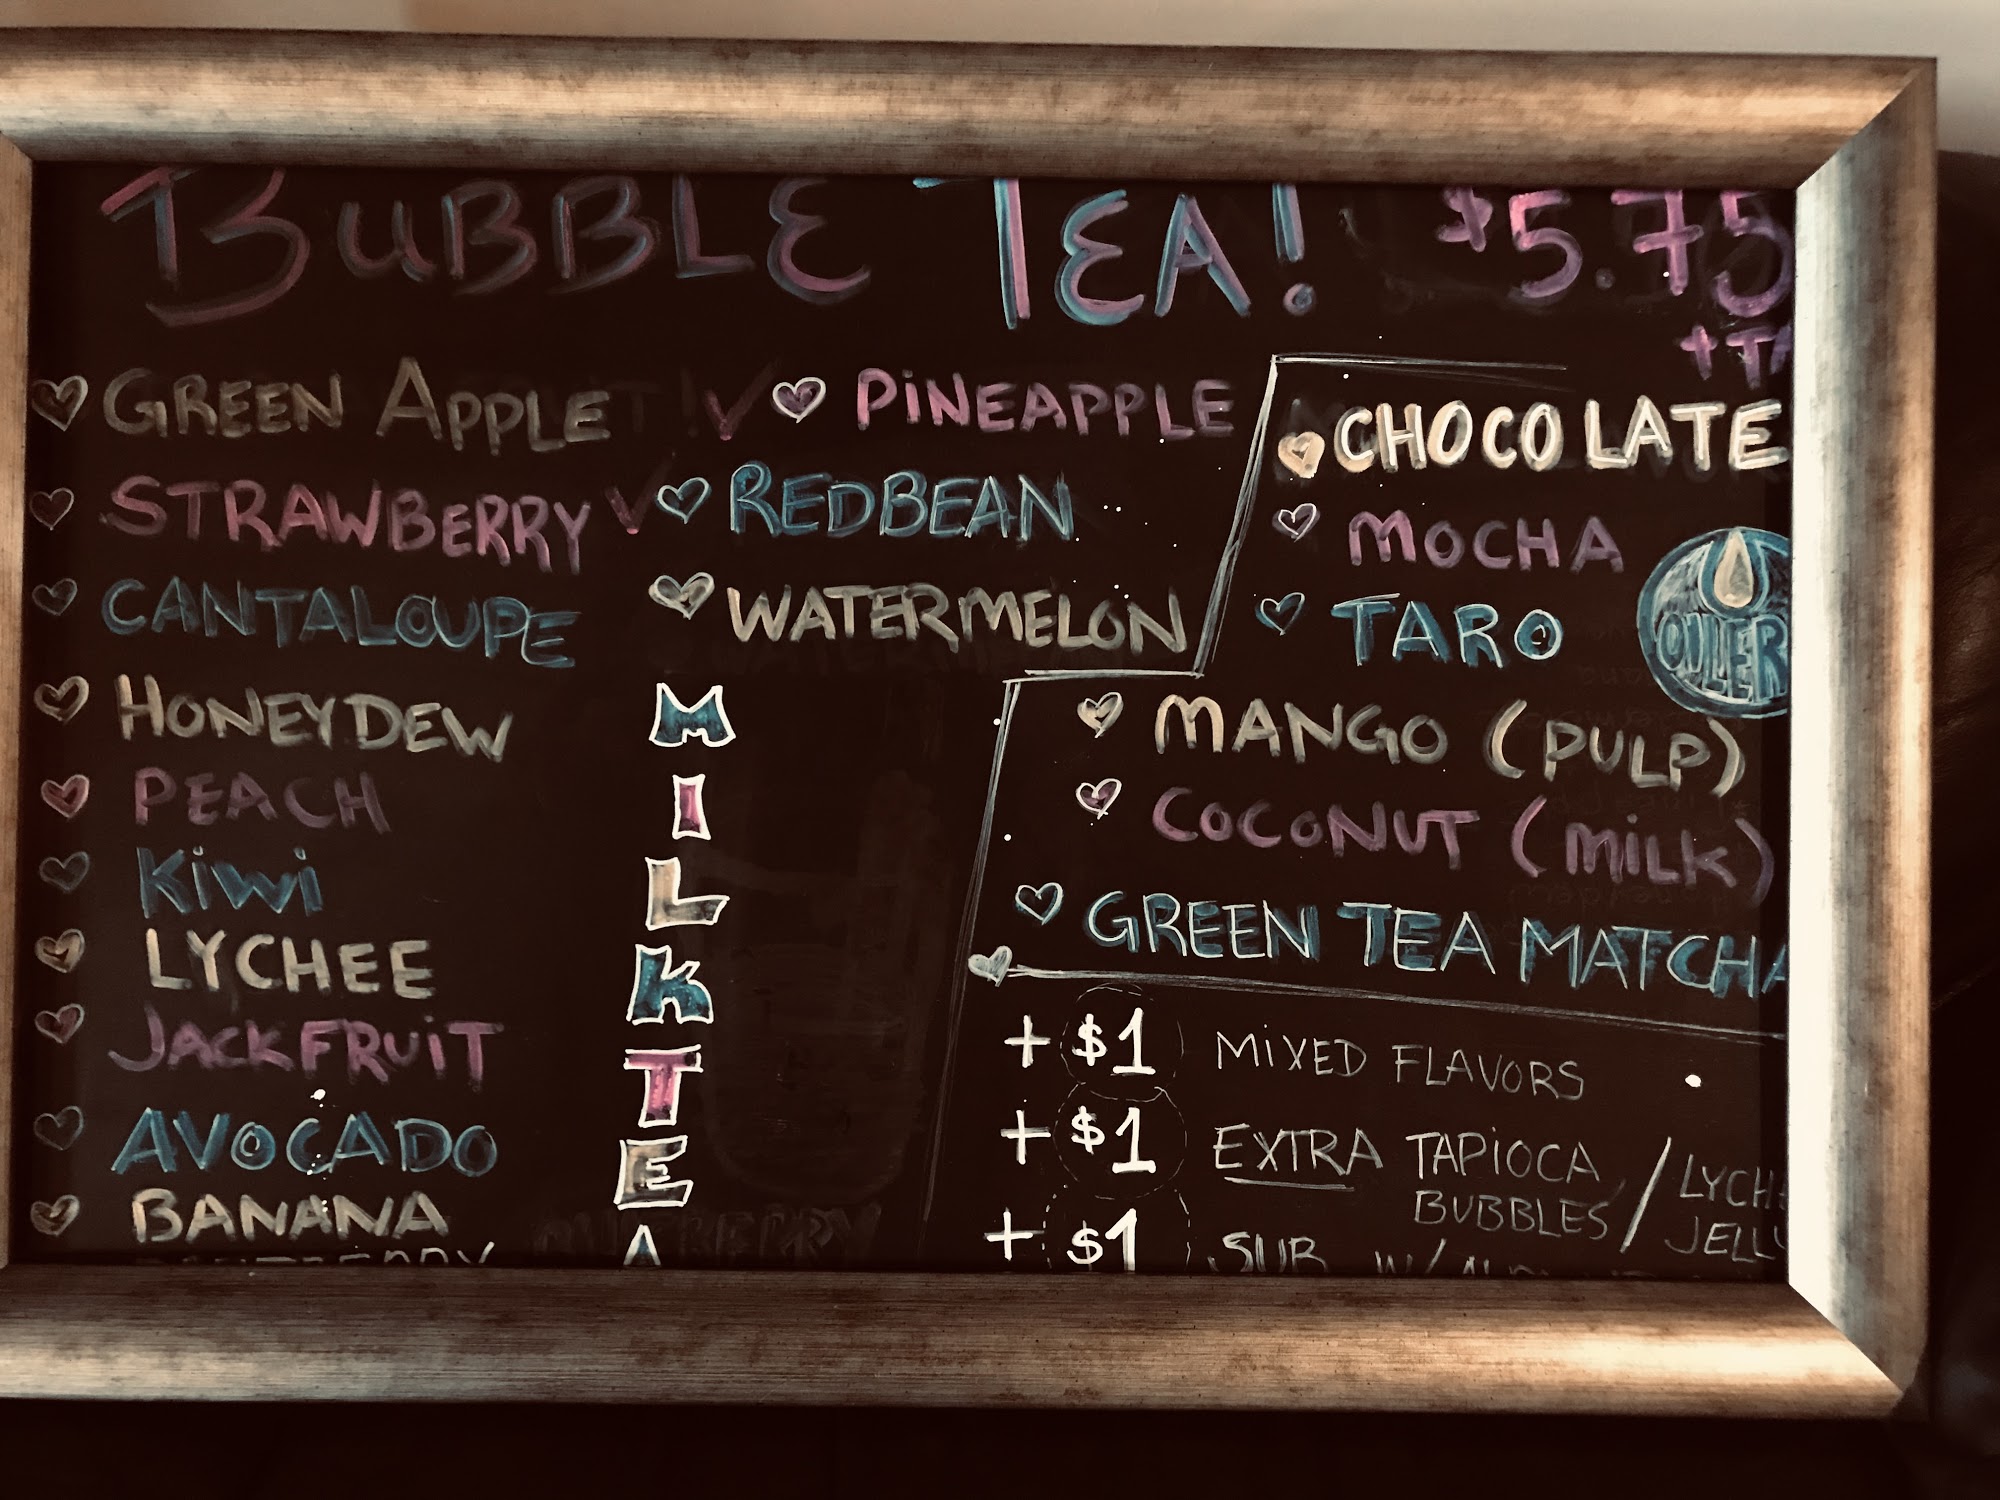 BUBBLE TEA! $5.75
GREEN APPLE
STRAWBERRY
CANTALOUPE
HONEYDEW
PEACH
KIWI
LYCHEE
JACKFRUIT
AVOCADO
BANANA
PINEAPPLE
REDBEAN
WATERMELON
MILK TEA
CHOCOLATE
MOCHA
TARO
OILER
MANGO (PULP)
COCONUT (MILK)
GREEN TEA MATCHA
+ $1 MIXED FLAVORS
+ $1 EXTRA TAPIOCA
BUBBLES /
JELLY
+ $1 SUB W/